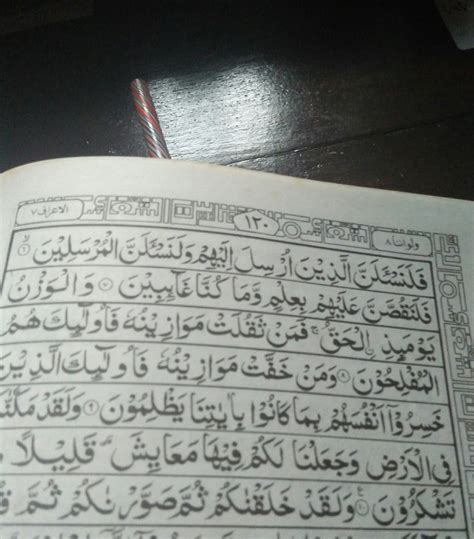 الاعراف ٧ ١٢٠ ولواننا ٨
فَلَنَسْـَٔلَنَّ الَّذِيْنَ اُرْسِلَ اِلَيْهِمْ وَلَنَسْـَٔلَنَّ الْمُرْسَلِيْنَ ۙ ٦
فَلَنَقُصَّنَّ عَلَيْهِمْ بِعِلْمٍ وَّمَا كُنَّا غَآىِٕبِيْنَ ٧ وَالْوَزْنُ
يَوْمَىِٕذِ ِۨالْحَقُّ ۚ فَمَنْ ثَقُلَتْ مَوَازِيْنُهٗ فَاُولٰٓىِٕكَ هُمُ
الْمُفْلِحُوْنَ ٨ وَمَنْ خَفَّتْ مَوَازِيْنُهٗ فَاُولٰٓىِٕكَ الَّذِيْنَ
خَسِرُوْٓا اَنْفُسَهُمْ بِمَا كَانُوْا بِاٰيٰتِنَا يَظْلِمُوْنَ ٩ وَلَقَدْ مَكَّنّٰ
فِى الْاَرْضِ وَجَعَلْنَا لَكُمْ فِيْهَا مَعَايِشَ ۗ قَلِيْلًا
تَشْكُرُوْنَ ١٠ وَلَقَدْ خَلَقْنٰكُمْ ثُمَّ صَوَّرْنٰكُمْ ثُمَّ